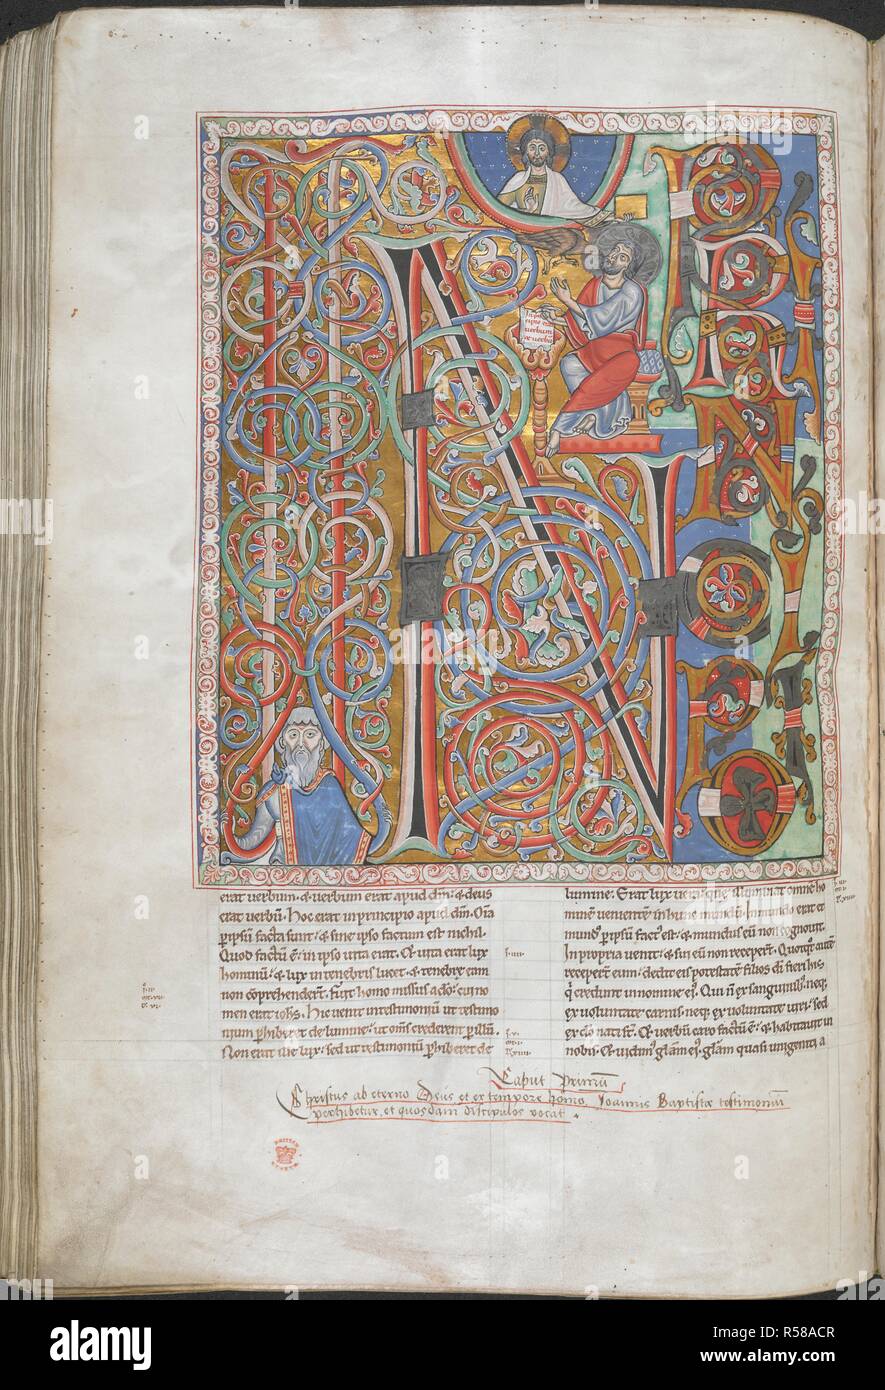 IN
PRINCIPIO
In prin
cipio erat
verbum
& verbū
erat verbum. & verbum erat apud dm̄. & deus
erat verbū. Hoc erat in principio apud dm̄. Om̄ia
p ipsū facta sunt. & sine ipso factum est nichil.
Quod factū ē. in ipso uita erat. & uita erat lux
hominū. & lux in tenebris lucet. & tenebre eam
non cōprehenderūt. Fuit homo missus a do. cui no
men erat iohs. Hic uenit in testimonium ut testimo
nium phiberet de lumine. ut om̄s crederent p illū.
Non erat ille lux. sed ut testimoniū phiberet de
lumine. Erat lux uera. que illuminat omnē ho
minē uenientē in hunc mundū. in mundo erat et
mundꝰ p ipsū factꝰ est. & mundus eū non cognouit.
In propria uenit. & sui eū non receperūt. Quotqt̄ autē
receperūt eum. dedit eis potestatē filios dī fieri his
q̄ credunt in nomine eꝰ. Qui n̄ ex sanguinibꝰ. neqꝫ
ex uoluntate carnis. neqꝫ ex uoluntate uiri. sed
ex dō nati st̄. Et uerbū caro factū ē. & habitauit in
nobis. & uidimꝰ glām eꝰ. glām quasi unigeniti a
Caput Primū
Christus ab eterno Deus et ex tempore homo, Joannis Baptistæ testimoniū
perhibetur, et quosdam discipulos vocat.
BRITISH
MUSEUM
alamy
R58ACR
Image ID: R58ACR
www.alamy.com